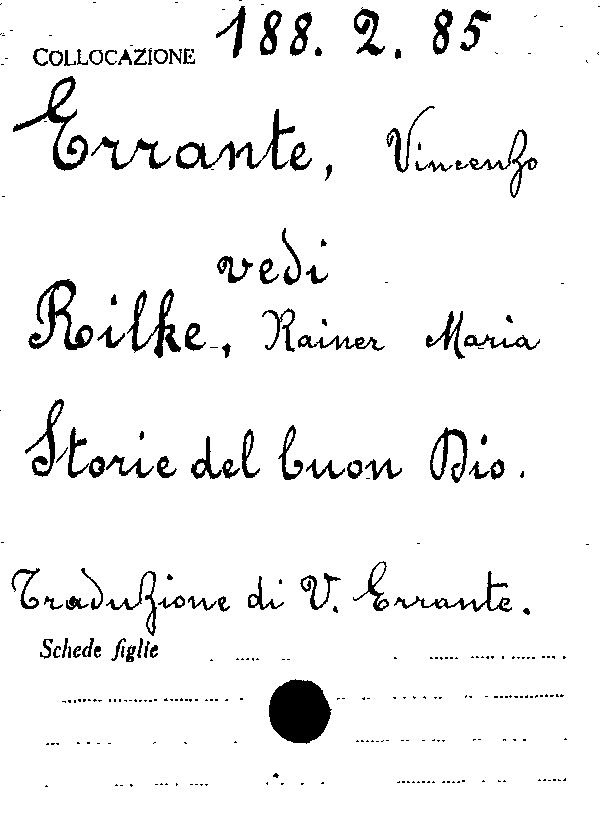 COLLOCAZIONE 188. 2. 85
Errante, Vincenzo
vedi
Rilke, Rainer Maria
Storie del buon Dio.
Traduzione di V. Errante.
Schede figlie